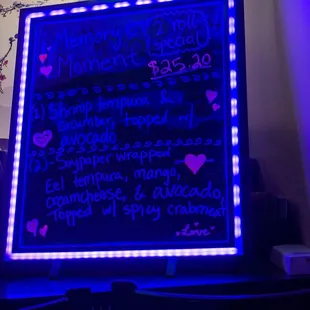 Memory &
Moment
2 roll
special
$25.20
(1) Shrimp tempura &
cucumber, topped w/
avocado
(2) - Soypaper wrapped
Eel tempura, mango,
creamcheese, & avocado,
Topped w/ spicy crabmeat
Love